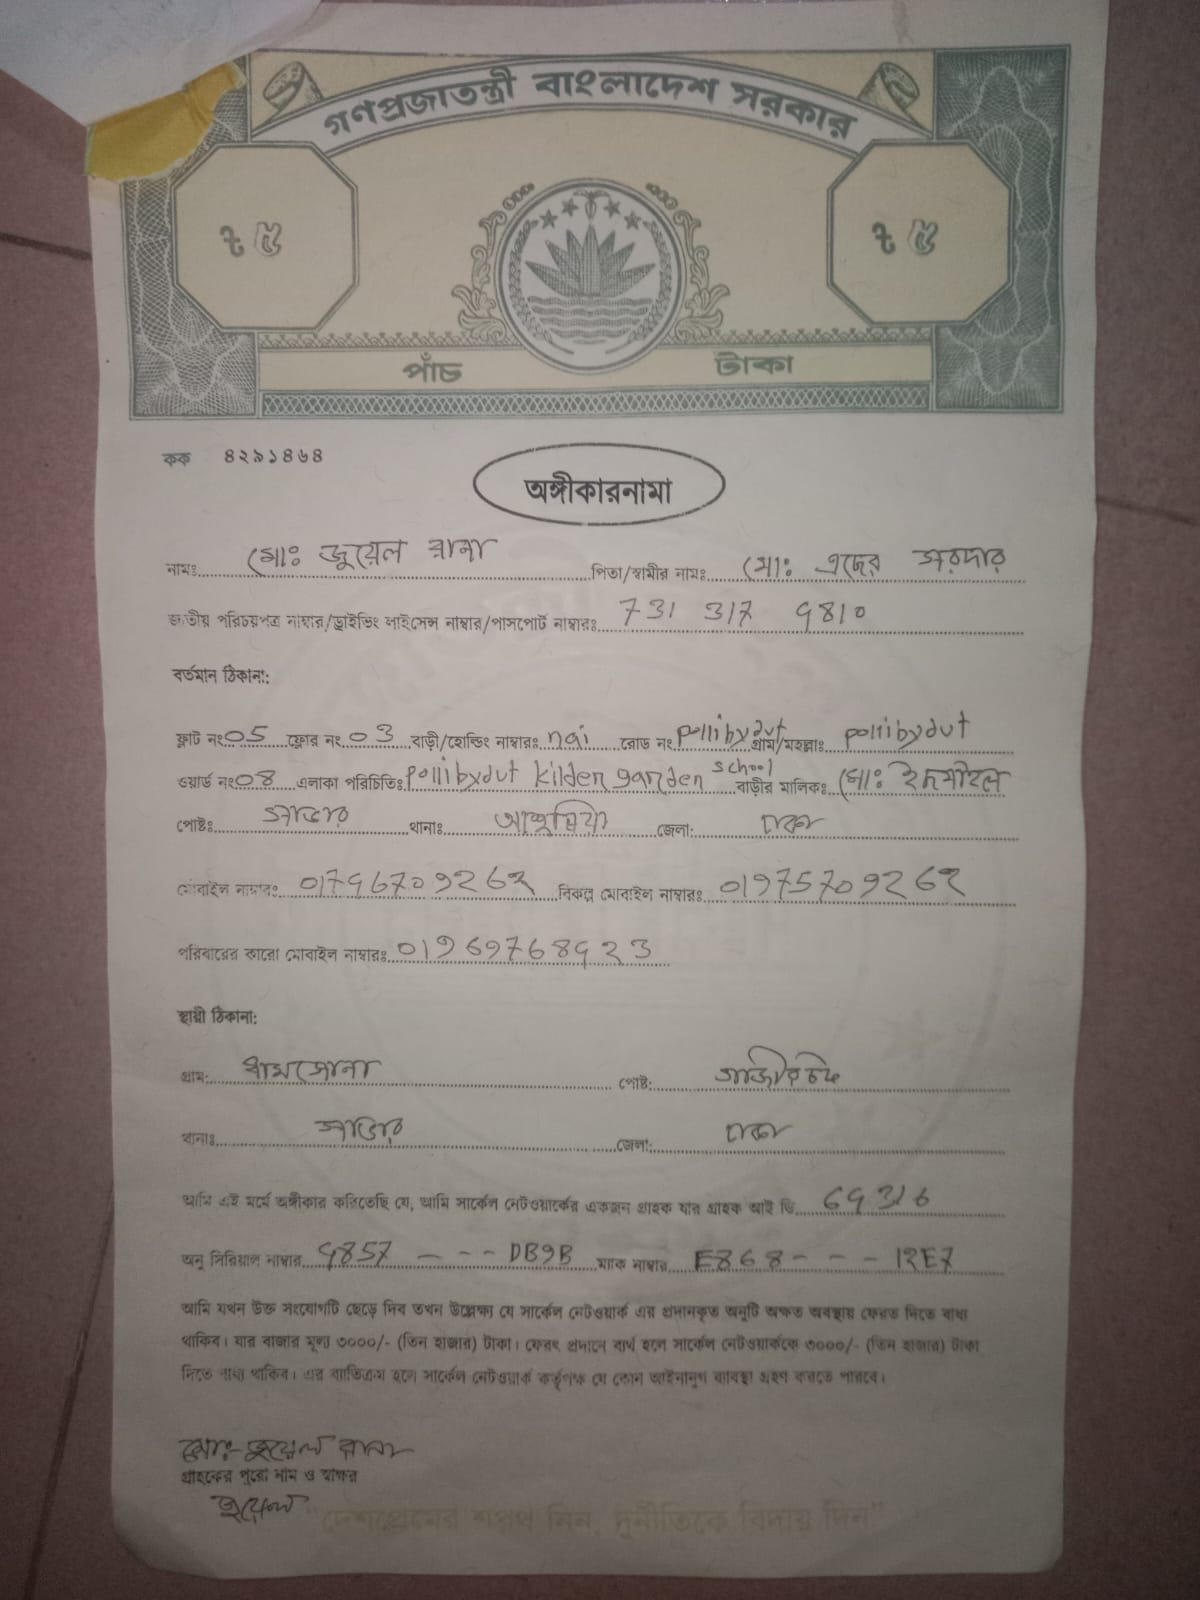 গণপ্রজাতন্ত্রী বাংলাদেশ সরকার
৳ ৫ ৳ ৫
পাঁচ টাকা
কক ৪২৯১৪৬৪
অঙ্গীকারনামা
নামঃ মোঃ জুয়েল রানা পিতা/স্বামীর নামঃ মোঃ এছের সরদার
জাতীয় পরিচয়পত্র নাম্বার/ড্রাইভিং লাইসেন্স নাম্বার/পাসপোর্ট নাম্বারঃ 731 317 9810
বর্তমান ঠিকানা:
ফ্লাট নং 05 ফ্লোর নং 03 বাড়ী/হোল্ডিং নাম্বারঃ nai রোড নং pollibydut গ্রাম/মহল্লাঃ pollibydut
ওয়ার্ড নং 08 এলাকা পরিচিতিঃ pollibydut kilden garden school বাড়ীর মালিকঃ মোঃ
পোষ্টঃ সাভার থানাঃ আশুলিয়া জেলা: ঢাকা
মোবাইল নাম্বারঃ বিকল্প মোবাইল নাম্বারঃ
পরিবারের কারো মোবাইল নাম্বারঃ
স্থায়ী ঠিকানা:
গ্রাম: ধামসোনা পোষ্ট:
থানাঃ সাভার জেলা: ঢাকা
আমি এই মর্মে অঙ্গীকার করিতেছি যে, আমি সার্কেল নেটওয়ার্কের একজন গ্রাহক যার গ্রাহক আই ডি
অনু সিরিয়াল নাম্বার --- DB9B ম্যাক নাম্বার E868 - - - 12E7
আমি যখন উক্ত সংযোগটি ছেড়ে দিব তখন উল্লেক্ষ্য যে সার্কেল নেটওয়ার্ক এর প্রদানকৃত অনুটি অক্ষত অবস্থায় ফেরত দিতে বাধ্য
থাকিব। যার বাজার মূল্য ৩০০০/- (তিন হাজার) টাকা। ফেরৎ প্রদানে ব্যর্থ হলে সার্কেল নেটওয়ার্ককে ৩০০০/- (তিন হাজার) টাকা
দিতে বাধ্য থাকিব। এর ব্যতিক্রম হলে সার্কেল নেটওয়ার্ক কর্তৃপক্ষ যে কোন আইনানুগ ব্যবস্থা গ্রহণ করতে পারবে।
মোঃ জুয়েল রানা
গ্রাহকের পুরো নাম ও স্বাক্ষর
জুয়েল
"দেশপ্রেমের শপথ নিন, দুর্নীতিকে বিদায় দিন"